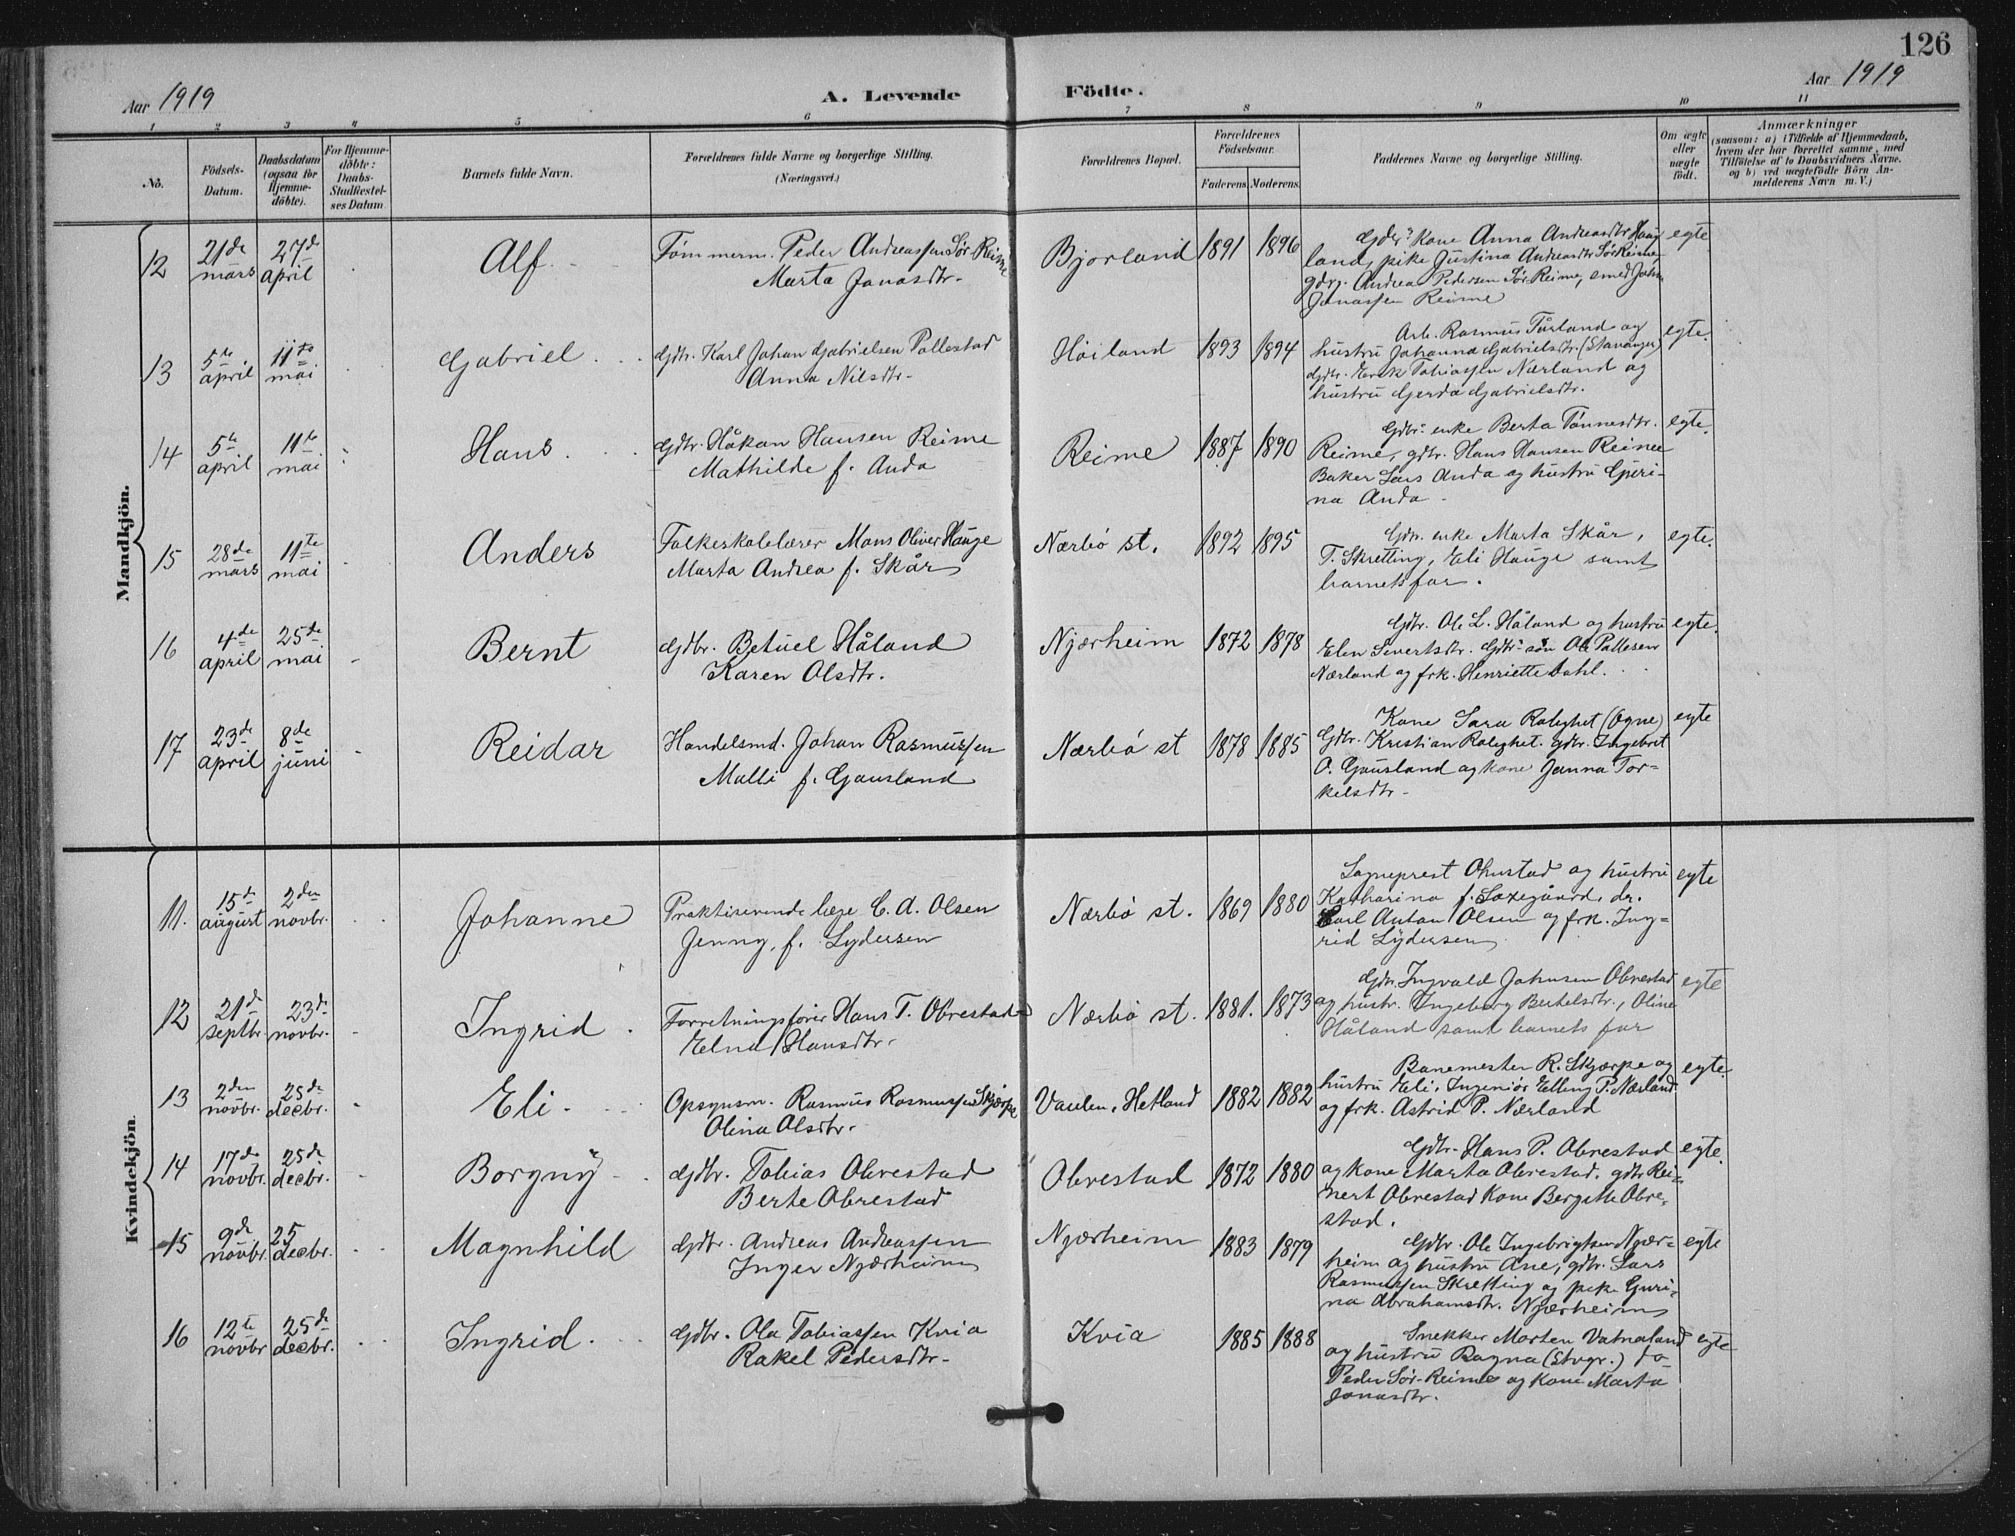 126
Aar 1919
A. Levende Födte.
Aar 1919
1 2 3 4 5 6 7 8 9 10 11
No.
Födsels-Datum.
Daabsdatum (ogsaa for Hjemmedöbte).
For Hjemmedöbte: Daabs-Stadfæstelses Datum
Barnets fulde Navn.
Forældrenes fulde Navne og borgerlige Stilling.
(Næringsvei.)
Forældrenes Bopæl.
Forældrenes Födselsaar.
Faderens Moderens
Faddernes Navne og borgerlige Stilling.
Om ægte eller uægte födt.
Anmærkninger
(saasom: a) i Tilfælde af Hjemmedaab, hvem der har forrettet samme, med Tilföielse af to Daabsvidners Navne. og b) ved uægtefödte Börn Anmelderens Navn m. V.)
Mandkjön.
12 21de mars 27de april Alf.
Tømmerm. Peder Andreassen Sør-Reime
Marta Jonasdtr.
Bjorland 1891 1896
Gdbrs kone Anna Andreasdtr. Haug
land, pike Justina Andreasdtr. Sør Reime,
gdrg. Andrea Pedersen Sør Reime, smed John
Jonassen Reime
egte
13 5te april 11te mai Gabriel
Gdbr. Karl Johan Gabrielsen Pollestad
Anna Nilsdtr.
Høiland 1893 1894
Arb. Rasmus Tårland og
hustru Johanna Gabrielsdtr. (Stavanger)
Gdbr. Erik Tobiassen Nærland og
hustru Gerda Gabrielsdtr.
egte.
14 5te april 11te mai Hans
Gdbr. Håkon Hansen Reime
Mathilde f. Anda
Reime 1887 1890
Gdbr. enke Berta Tønnesdtr.
Reime, gdbr. Hans Hansen Reime
Baker Lars Anda og hustru Guri-
na Anda
egte.
15 28de mars 11te mai Anders
Folkeskolelærer Mons Oliver Hauge
Marta Andrea f. Skår
Nærbø st. 1892 1895
Gdbr. enke Marta Skår,
T. Skretting, Eli Hauge samt
barnets far.
egte.
16 4de april 25de mai Bernt
Gdbr. Betuel Håland
Karen Olsdtr.
Njærheim 1872 1878
Gdbr. Ole L. Håland og hustru
Elen Sivertsdtr. Gdbr. søn Ole Pallesen
Nærland og frk. Henriette Dahl.
egte.
17 23de april 8de juni Reidar
Handelsmd. Johan Rasmussen
Malli f. Gausland
Nærbø st 1878 1885
Kone Sara Rolighet (Ogne)
Gdbr. Kristian Rolighet. gdbr. Ingebret
O. Gausland og kone Janna Tor-
kelsdtr.
egte
Kvindekjön.
11. 15de august 2den novbr. Johanne
Praktiserende læge C. A. Olsen
Jenny, f. Lydersen
Nærbø st. 1869 1880
Sogneprest Ohnstad og hustru
Katharina f. Saxegaard, dr.
Carl Anton Olsen og frk. Ing-
rid Lydersen
egte
12 21de septbr. 23de novbr. Ingrid
Forretningsfører Hans T. Obrestad
Elna Hansdtr.
Nærbø st. 1881. 1873
Gdbr. Ingvald Johnsen Obrestad
og hustr. Ingeborg Bertelsdtr., Oline
Håland samt barnets far
egte
13 2den novbr. 25de decbr. Eli
Opsynsm. Rasmus Rasmussen Skjærpe
Olina Olsdtr.
Vaulen, Hetland 1882 1882
Banemester R. Skjærpe og
hustru Eli, Ingeniør Elling P. Nærland
og frk. Astrid P. Nærland
egte.
14 17de novbr. 25de decbr. Borgny
Gdbr. Tobias Obrestad
Berte Obrestad
Obrestad 1872 1880
Gdbr. Hans P. Obrestad
og kone Marta Obrestad. gdbr. Rei-
nert Obrestad Kone Bergitte Obre-
stad.
egte.
15 9de novbr. 25 decbr. Magnhild
Gdbr. Andreas Andreassen
Inger Njærheim
Njærheim 1883 1879
Gdbr. Ole Ingebrigtsen Njær-
heim og hustru Ane, gdbr. Lars
Rasmussen Skretting og pike Guri-
na Abrahamsdtr. Njærheim
egte
16 12te novbr 25de decbr. Ingrid
Gdbr. Ola Tobiassen Kvia
Rakel Pedersdtr.
Kvia 1885 1888
Snekker Morten Vatnaland
og hustru Ragna (Stvgr.)
Peder Sør-Reime og kone Marta
Jonasdtr.
egte